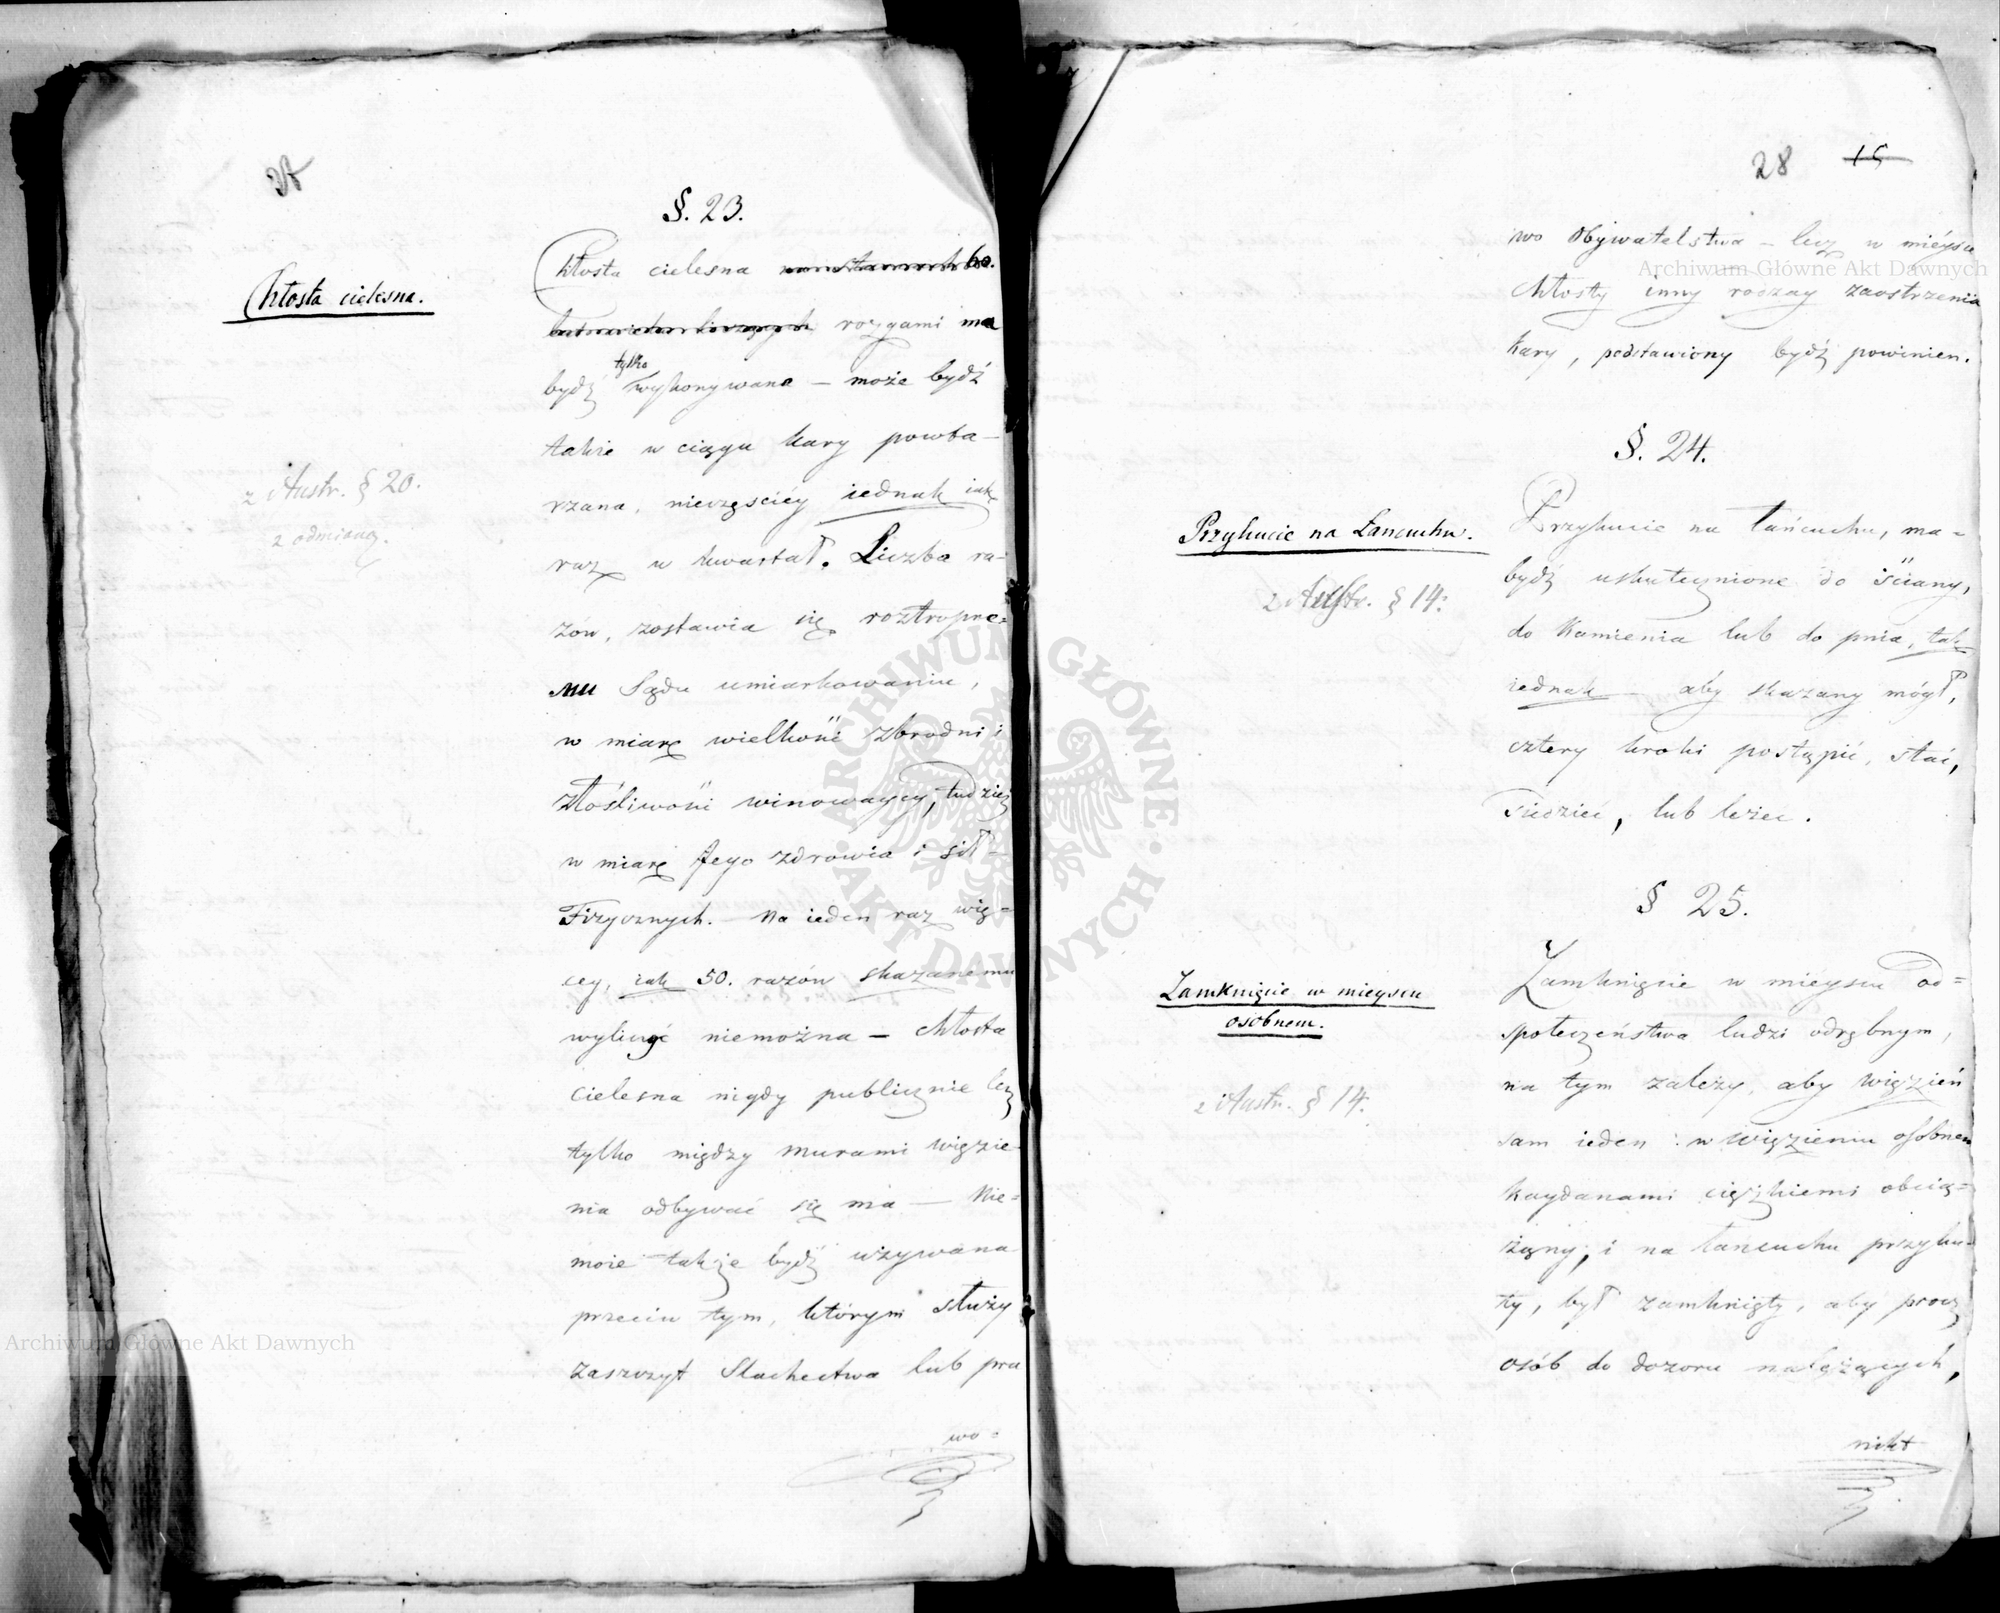 §. 23.
Chłosta cielesna.
Chłosta cielesna
rozgami ma
bydź tylko wykonywana — może bydź
także w ciągu kary powta-
rzana, nieczęściéy iednak iak
z Austr. § 20.
z odmianą.
raz w kwartał. Liczba ra-
zów, zostawia się roztropne=
mu Sądu umiarkowaniu,
w miarę wielkości zbrodni i
złośliwości winowaycy, tudzież
w miarę Jego zdrowia i sił
Fizycznych. — Na ieden raz wię=
cey, iak 50. razów skazanemu
wyliczyć niemożna — Chłosta
cielesna nigdy publicznie lecz
tylko między murami więzie-
nia odbywać się ma — Nie=
może także bydź używana
przeciw tym, którym służy
zaszczyt Slachectwa lub pra
wo=
28 15
wo Obywatelstwa — lecz w miéysce
Chłosty inny rodzay zaostrzenia
kary, podstawiony bydź powinien.
§. 24.
Przykucie na Łancuchu.
z Austr. § 14.
Przykucie na łańcuchu, ma=
bydź uskutecznione do ściany,
do Kamienia lub do pnia, tak
iednak — aby skazany mógł,
cztery kroki postąpić, stać,
siedzieć, lub leżec.
§ 25.
Zamknięcie w mieyscu
osobnem.
z Austr. § 14.
Zamknięcie w miéyscu od=
społeczeństwa ludzi odrębnym,
na tym zależy, aby więzień
sam ieden w więzieniu osobnem
kaydanami cięzkiemi obcią=
żony, i na łancuchu przyku=
ty, był zamknięty, aby procz
osób do dozoru należących,
nikt
Archiwum Główne Akt Dawnych
Archiwum Główne Akt Dawnych
ARCHIWUM GŁÓWNE AKT DAWNYCH